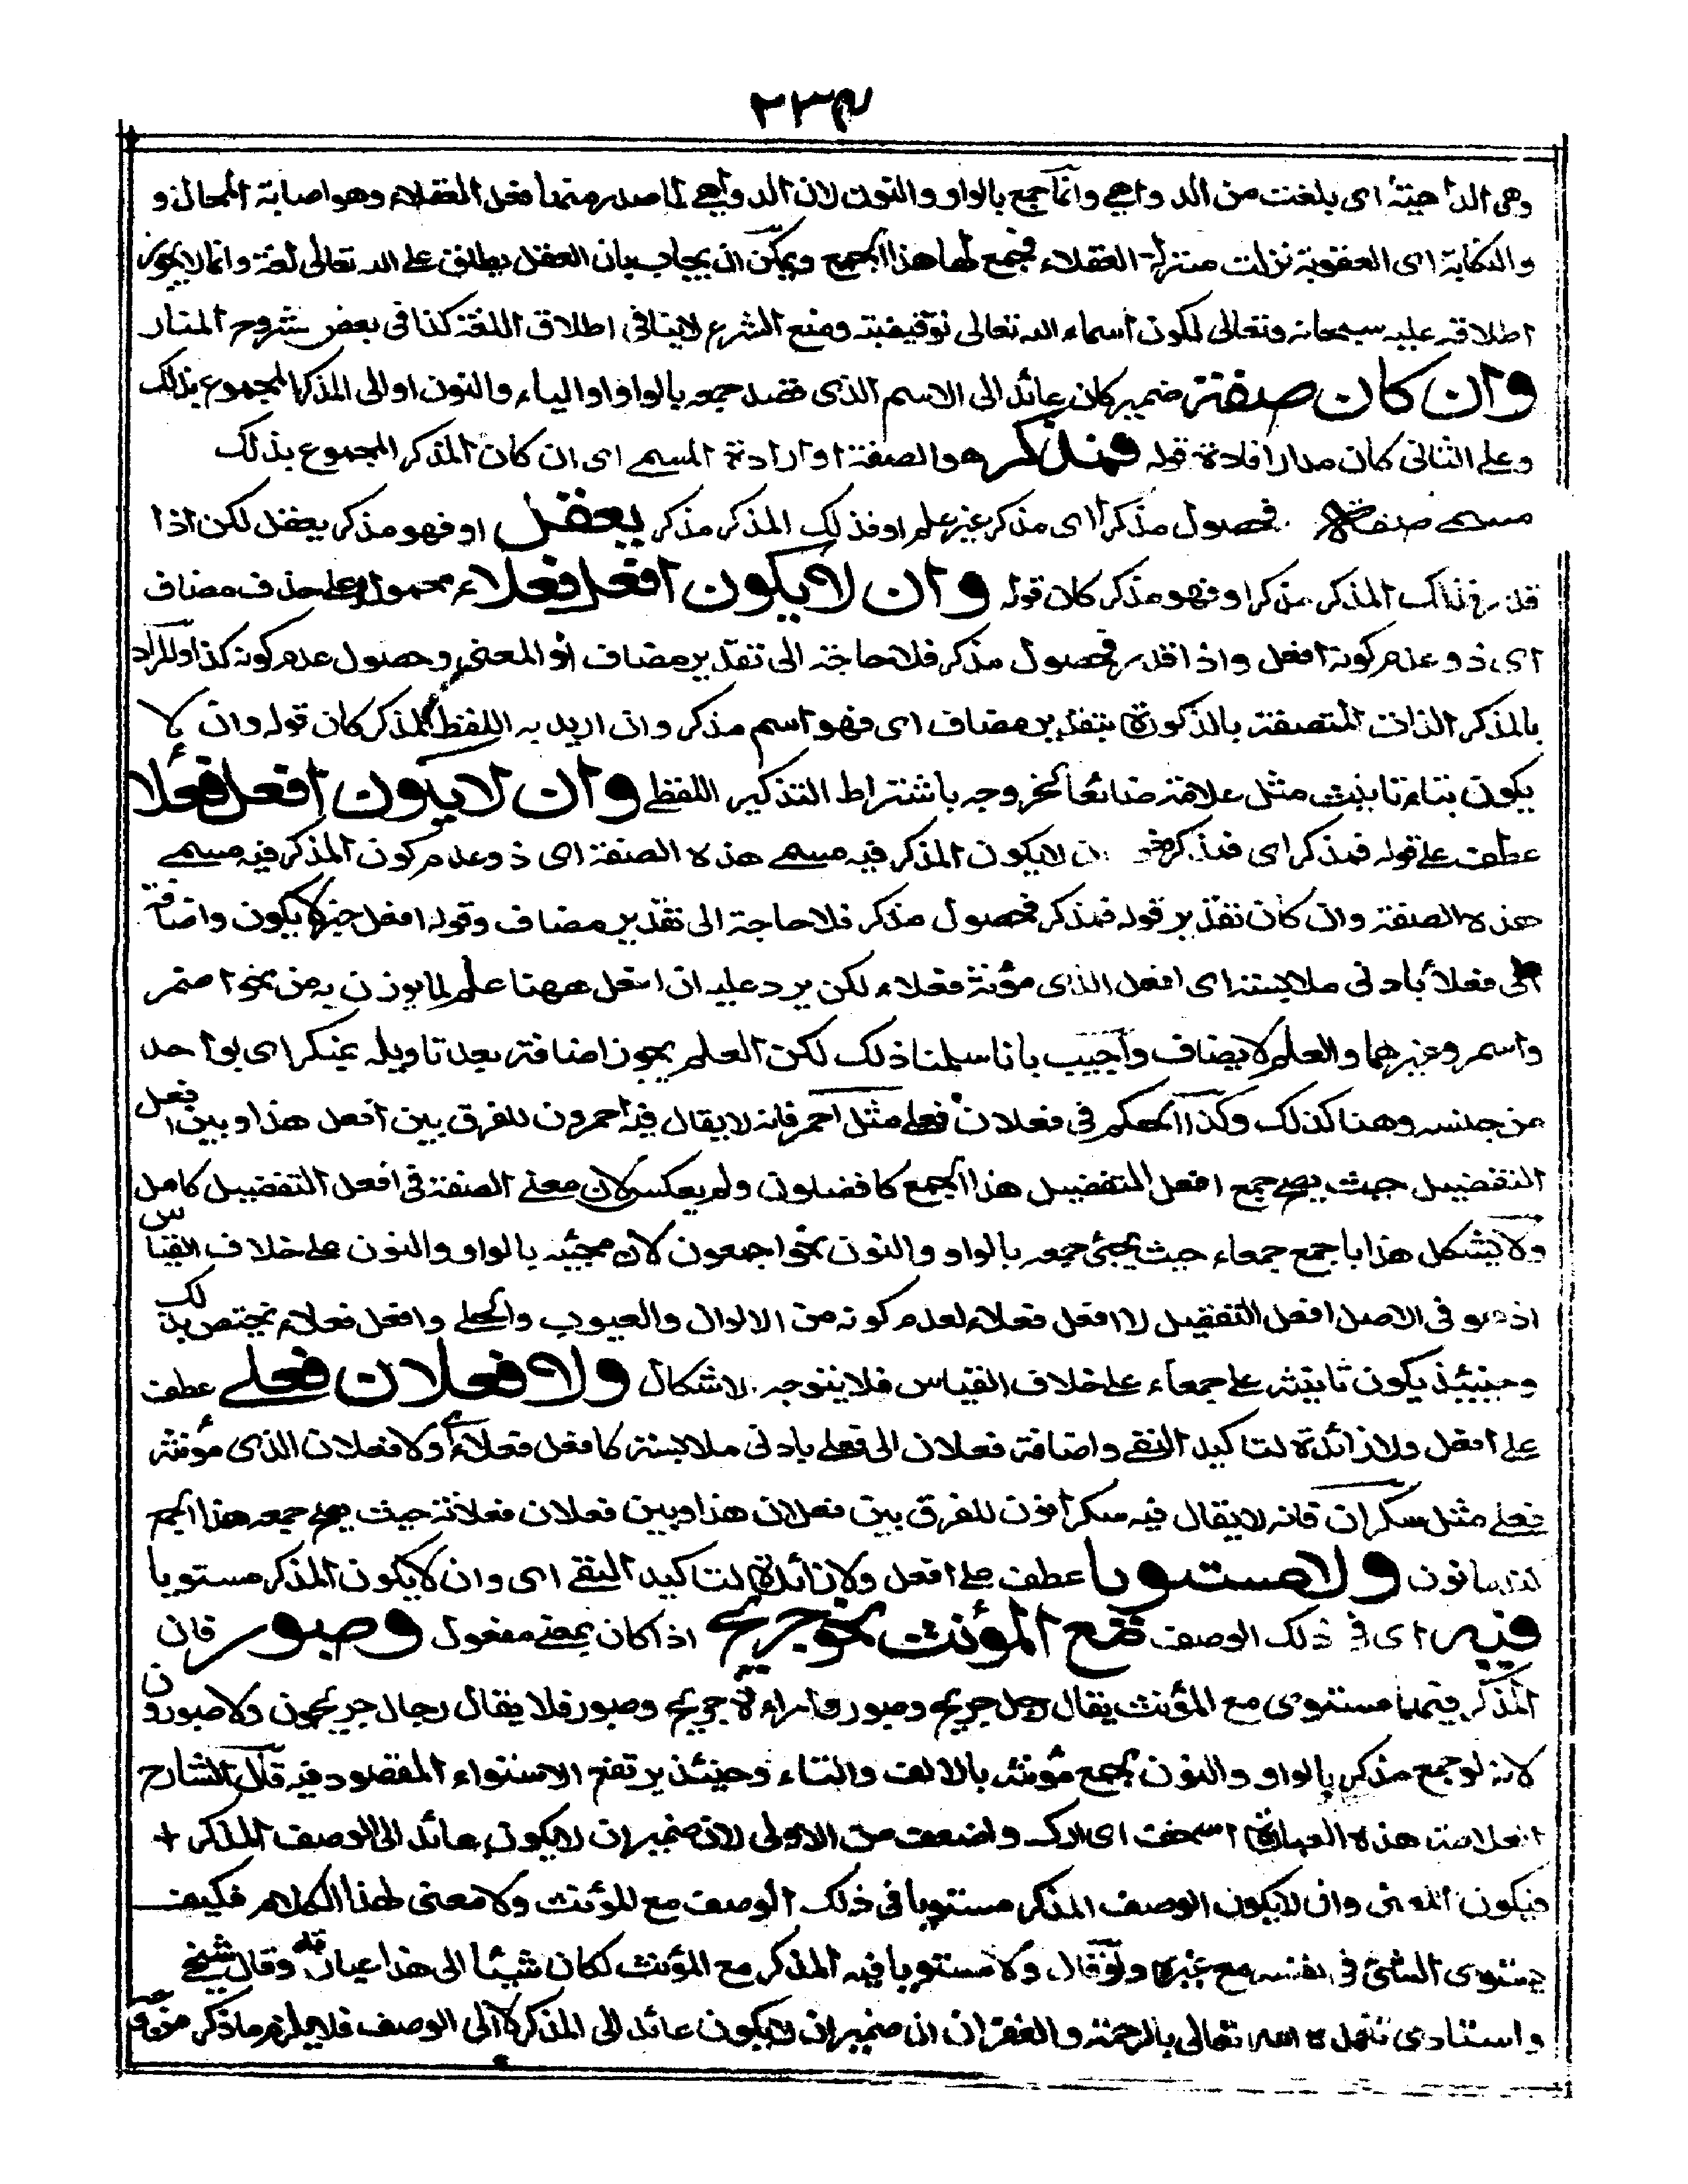 ٢٣٤
وهى الداهية اى بلغت من الدواهى وانما جمع بالواو والنون لان الدواهى لما صدر منها فعل العقلاء وهو اصابة المحال و
والنكاية اى العقوبة نزلت منزلة العقلاء فجمع لها هذا الجمع ويمكن ان يجاب بان العقل يطلق على الله تعالى لغة وانما لا يجوز
اطلاقه عليه سبحانه وتعالى لكون اسماء الله تعالى توقيفية ومنع الشرع لا ينافى اطلاق اللغة كذا فى بعض شروح المنار
وان كان صفة ضمير كان عائد الى الاسم الذى قصد جمعه بالواو او الياء والنون او الى المذكر المجموع بذلك
وعلى الثانى كان مدار افادة قوله فمذكر هو الصفة او ارادة المسمى اى ان كان المذكر المجموع بذلك
مسمى صفة فحصول مذكر اى مذكر غير علم او فذلك المذكر مذكر يعقل او فهو مذكر يعقل لكن اذا
قدر فذلك المذكر مذكر او فهو مذكر كان قوله وان لا يكون افعل فعلاء محمولا على حذف مضاف
اى ذو عدم كونه افعل واذا قدر فحصول مذكر فلا حاجة الى تقدير مضاف اذ المعنى وحصول عدم كونه كذا والمراد
بالمذكر الذات المتصفة بالذكورة بتقدير مضاف اى فهو اسم مذكر وان اريد به اللفظ المذكر كان قوله وان لا
يكون بتاء تانيث مثل علامة ضائعا لخروجه باشتراط التذكير اللفظى وان لا يكون افعل فعلا
عطف على قوله فمذكر اى فمذكر ان لا يكون المذكر فيه مسمى هذه الصفة اى ذو عدم كون المذكر فيه مسمى
هذه الصفة وان كان تقدير قوله فمذكر فحصول مذكر فلا حاجة الى تقدير مضاف وقوله افعل خبر لا يكون واضافة
الى فعلاء بادنى ملابسة اى افعل الذى مؤنثه فعلاء لكن يرد عليه ان افعل ههنا علم لما يوزن به من نحو احمر
واسمر وغيرهما والعلم لا يضاف واجيب بانا سلمنا ذلك لكن العلم يجوز اضافته بعد تاويله بمنكر اى بواحد
من جنسه وهنا كذلك وكذا الحكم فى فعلان فعلى مثل احمر فانه لا يقال فيه احمرون للفرق بين افعل هذا وبين افعل
التفضيل حيث يصح جمع افعل التفضيل هذا الجمع كافضلون ولم يعكس لان معنى الصفة فى افعل التفضيل كامل
ولا يشكل هذا باجمع جمعاء حيث يجئ جمعه بالواو والنون نحو اجمعون لان مجيئه بالواو والنون على خلاف القياس
اذ هو فى الاصل افعل التفضيل لا افعل فعلاء لعدم كونه من الالوان والعيوب والحلى وافعل فعلاء يختص بذلك
وحينئذ يكون تانيثه على جمعاء على خلاف القياس فلا يتوجه الاشكال ولا فعلان فعلى عطف
على افعل ولا زائدة لتاكيد النفى واضافة فعلان الى فعلى بادنى ملابسة كافعل فعلاء اى ولا فعلان الذى مؤنثه
فعلى مثل سكران فانه لا يقال فيه سكرانون للفرق بين فعلان هذا وبين فعلان فعلانة حيث يصح جمعه هذا الجمع
كندمانون ولا مستويا عطف على افعل ولا زائدة لتاكيد النفى اى وان لا يكون المذكر مستويا
فيه اى فى ذلك الوصف مع المؤنث نحو جريح اذا كان بمعنى مفعول وصبور فان
المذكر فيهما مستوى مع المؤنث يقال رجل جريح وصبور وامراءة جريح وصبور فلا يقال رجال جريحون ولا صبورون
لانه لو جمع مذكر بالواو والنون لجمع مؤنثه بالالف والتاء وحينئذ يرتفع الاستواء المقصود فيه قال الشارح
العلامة هذه العبارة اسخف اى ارك واضعف من الاولى لان ضمير ان لا يكون عائد الى الوصف المذكر +
فيكون المعنى وان لا يكون الوصف المذكر مستويا فى ذلك الوصف مع المؤنث ولا معنى لهذا الكلام فكيف
يستوى الشئ فى نفسه مع غيره ولو قال ولا مستويا فيه المذكر مع المؤنث لكان شيئا الى هذا عبارته وقال شيخى
واستنادى تغمده الله تعالى بالرحمة والغفران ان ضمير ان لا يكون عائد الى المذكر لا الى الوصف فلا يلزم ما ذكر